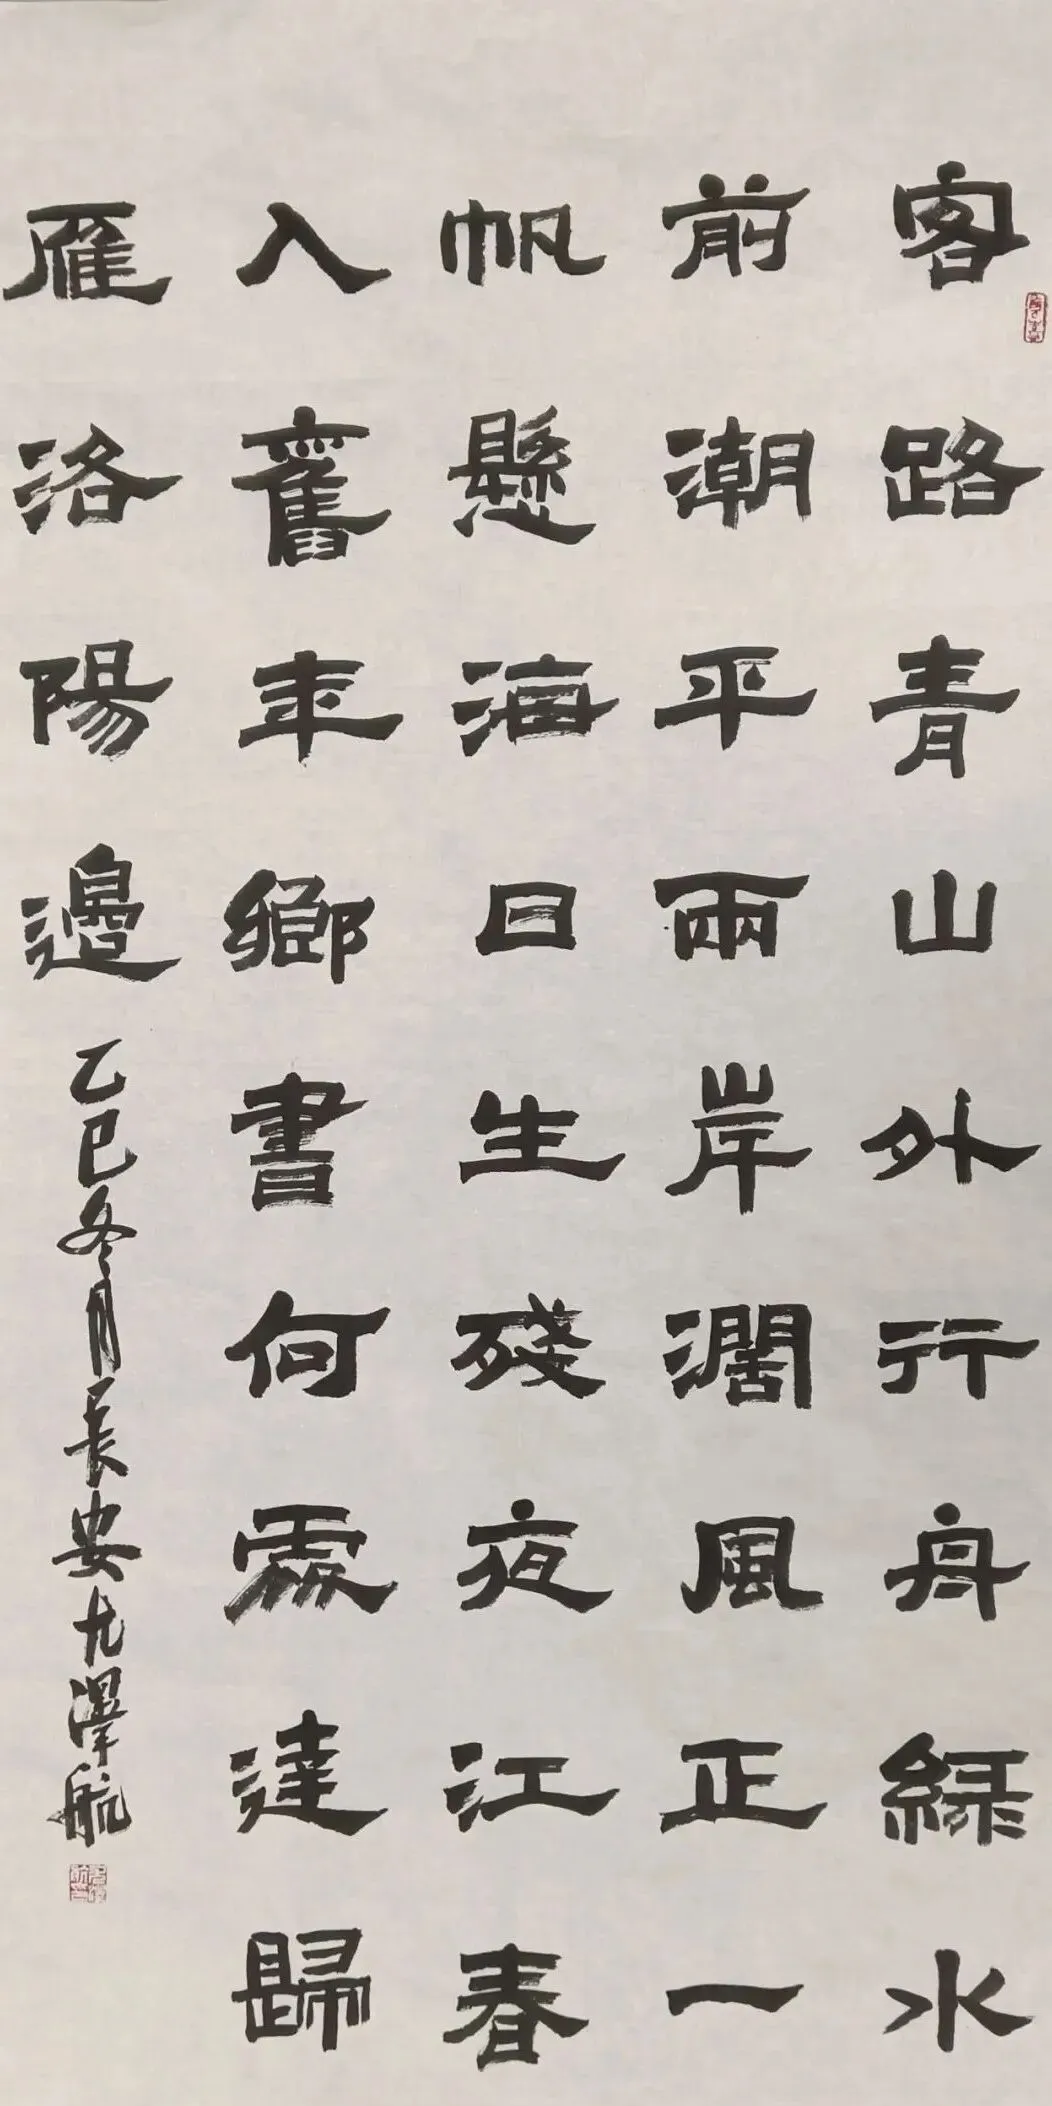 客路青山外行舟緑水
前潮平兩岸濶風正一
帆懸海日生殘夜江春
入舊年鄉書何處達歸
雁洛陽邊
乙巳冬月長安尤澤航